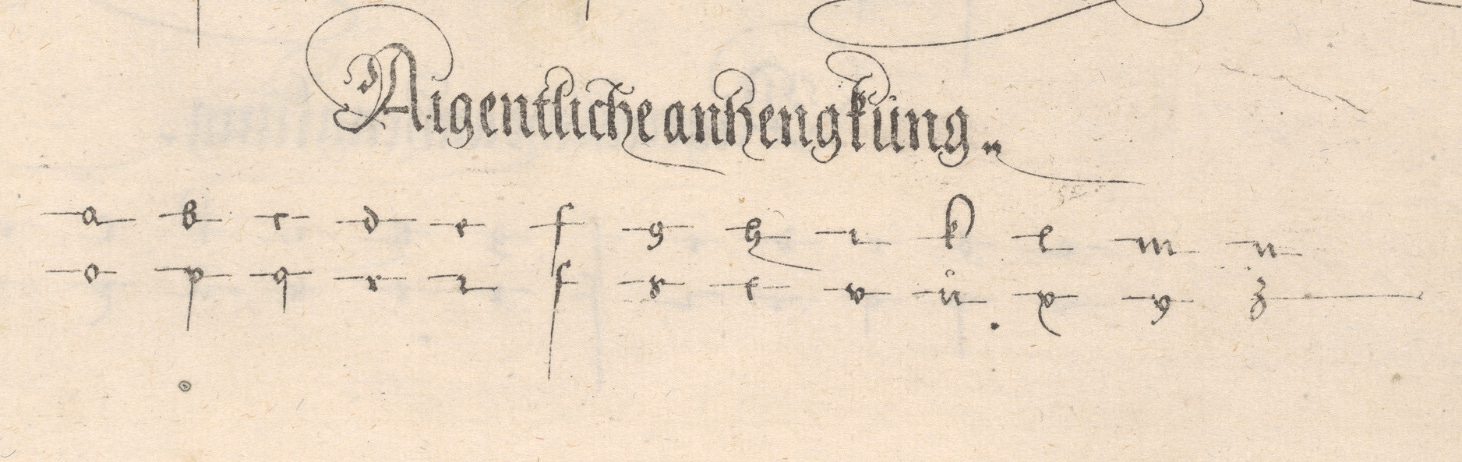 Aigentliche anhengkung..
a b c d e f g h i k l m n
o p q r r ſ s t v ů x y z